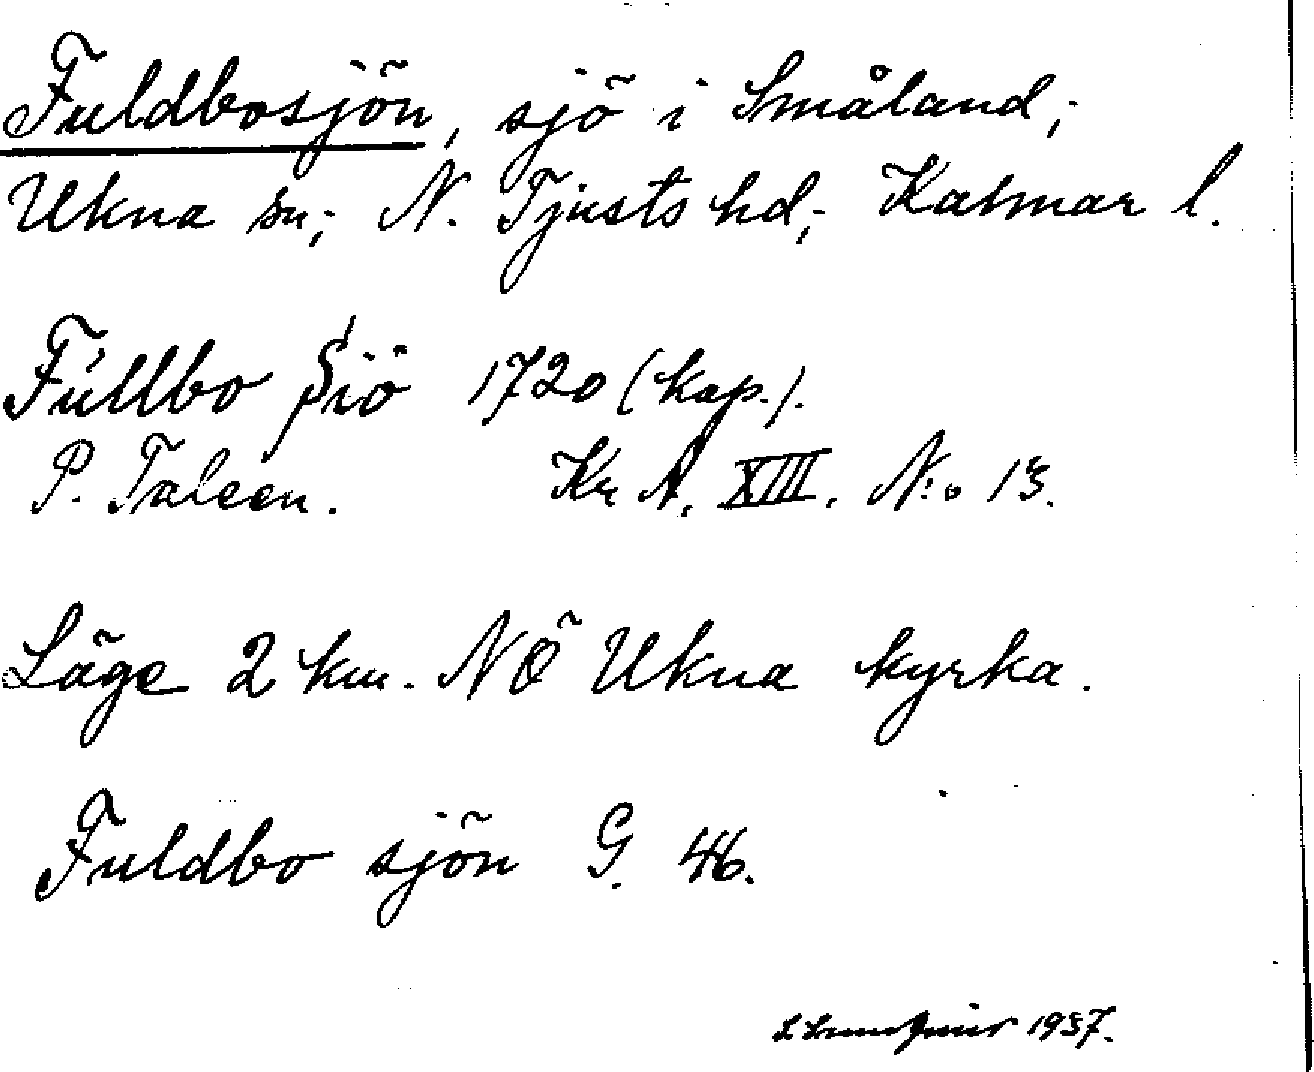 Fuldbosjön, sjö i Småland;
Ukna sn; N. Tjusts hd; Kalmar l.
Fúllbo Siö 1720 (kop.).
P. Taleen. Kr A. XIII. N:o 13.
Läge 2 km. NÖ Ukna kyrka.
Fuldbo sjön G. 46.
1937.